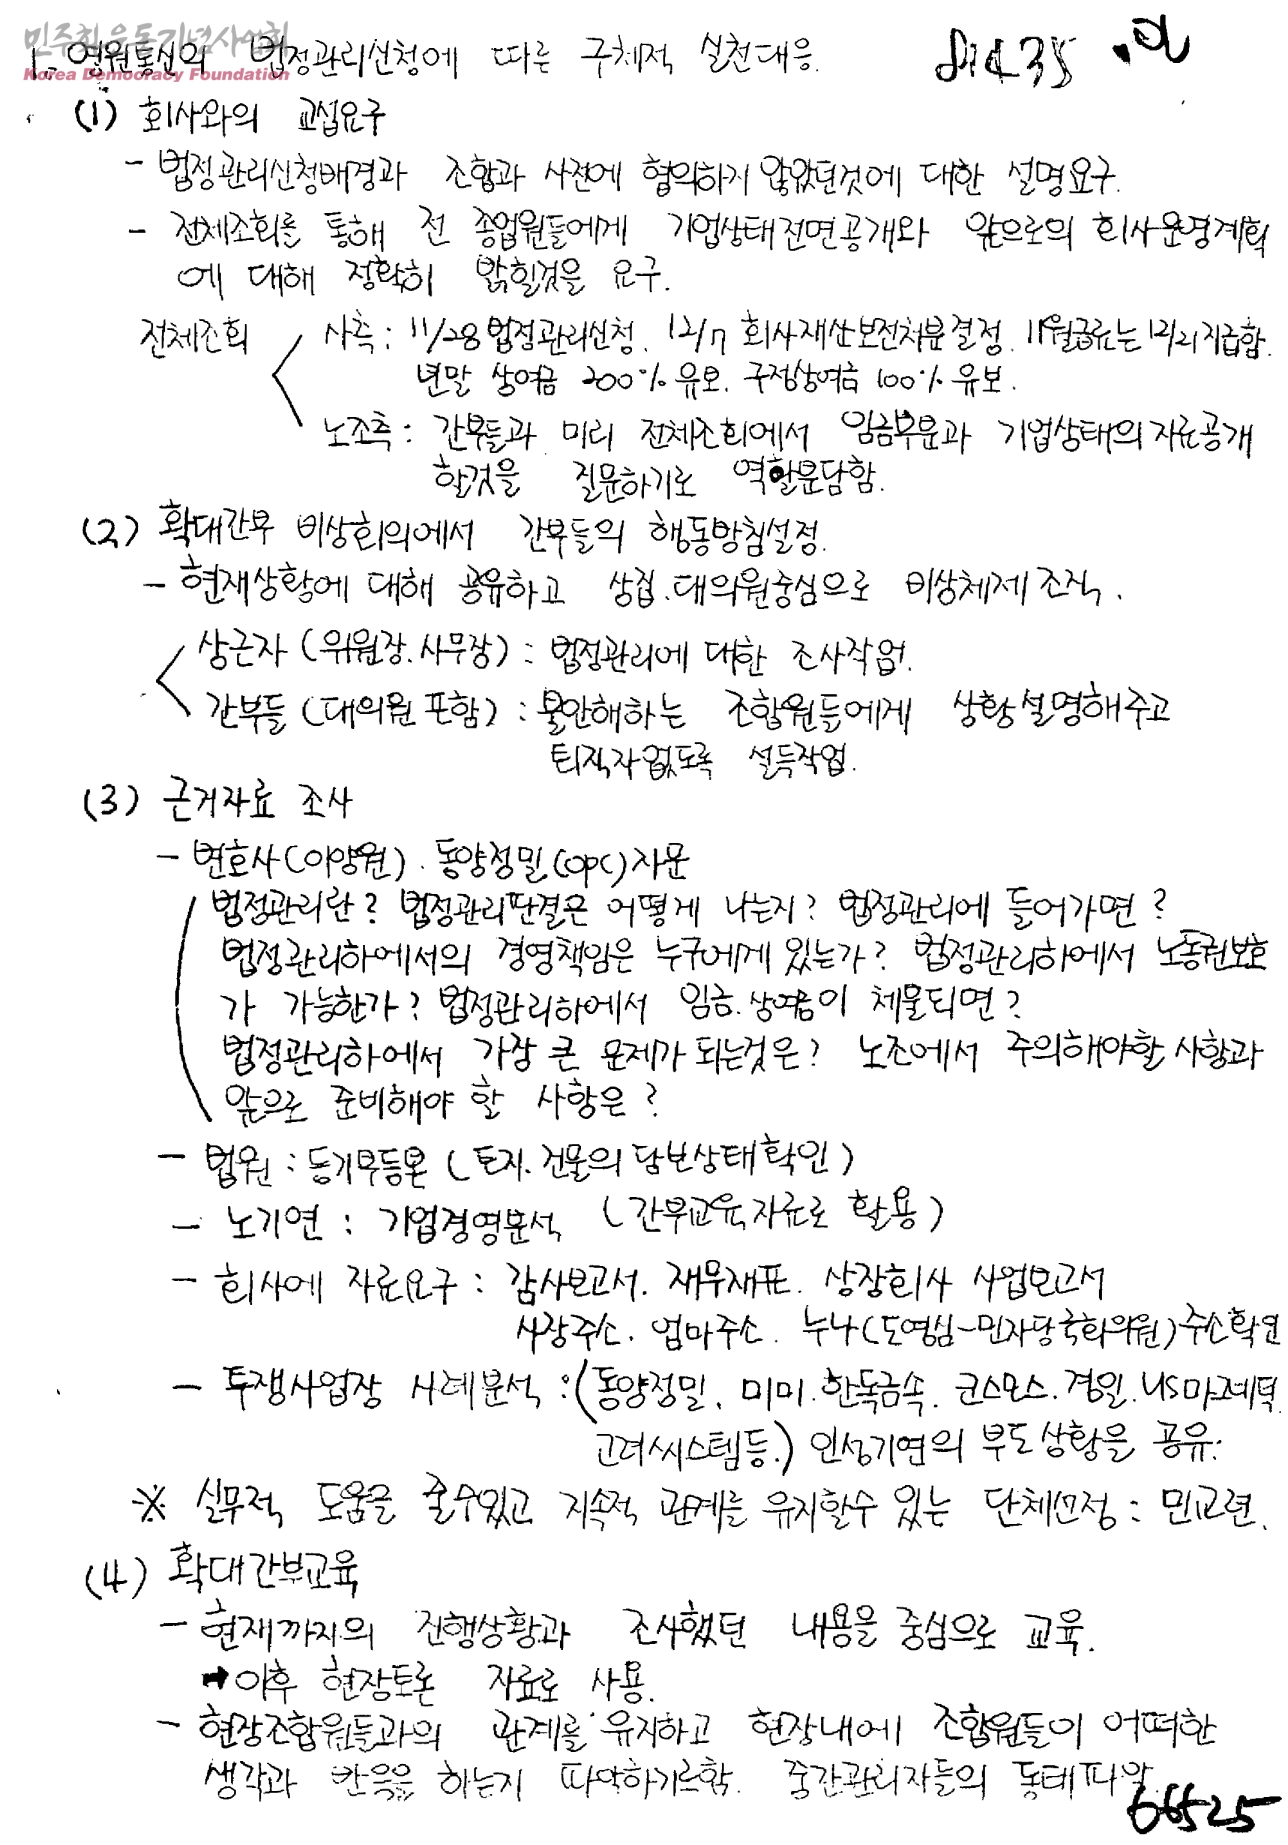 민주화운동기념사업회
Korea Democracy Foundation
1. 영원통신의 법정관리신청에 따른 구체적 실천대응.
(1) 회사와의 교섭요구
- 법정관리신청배경과 조합과 사전에 협의하지 않았던것에 대한 설명요구.
- 전체조회를 통해 전 종업원들에게 기업상태전면공개와 앞으로의 회사운영계획
에 대해 정확히 밝힐것을 요구.
전체조회 사측 : 11/28 법정관리신청. 12/7 회사재산보전처분결정. 11월급료는 12/21지급함.
년말 상여금 200% 유보. 구정상여금 100% 유보.
노조측 : 간부들과 미리 전체조회에서 임금부분과 기업상태의 자료공개
할것을 질문하기로 역할분담함.
(2) 확대간부 비상회의에서 간부들의 행동방침설정.
- 현재상황에 대해 공유하고 상집.대의원중심으로 비상체제 조직.
상근자 (위원장.사무장) : 법정관리에 대한 조사작업.
간부들 (대의원 포함) : 불안해하는 조합원들에게 상황설명해주고
퇴직자없도록 설득작업.
(3) 근거자료 조사
- 변호사(이양원). 동양정밀(OPC)자문
법정관리란? 법정관리판결은 어떻게 나는지? 법정관리에 들어가면?
법정관리하에서의 경영책임은 누구에게 있는가? 법정관리하에서 노동권보호
가 가능한가? 법정관리하에서 임금.상여금이 체불되면?
법정관리하에서 가장 큰 문제가 되는것은? 노조에서 주의해야할 사항과
앞으로 준비해야 할 사항은?
- 법원 : 등기부등본 (토지.건물의 담보상태확인)
- 노기연 : 기업경영분석 (간부교육자료로 활용)
- 회사에 자료요구 : 감사보고서. 재무재표. 상장회사 사업보고서
사장주소. 엄마주소. 누나(도영심-민자당국회의원)주소확인
- 투쟁사업장 사례분석 : (동양정밀. 미미. 한독금속. 코스모스. 경일. US마그네틱.
고려씨스템등.) 인성기연의 부도상황을 공유.
※ 실무적 도움을 줄수있고 지속적 관계를 유지할수 있는 단체선정 : 민교련.
(4) 확대간부교육
- 현재까지의 진행상황과 조사했던 내용을 중심으로 교육.
➡ 이후 현장토론 자료로 사용.
- 현장조합원들과의 관계를 유지하고 현장내에 조합원들이 어떠한
생각과 반응을 하는지 파악하기로함. 중간관리자들의 동태파악.
66525